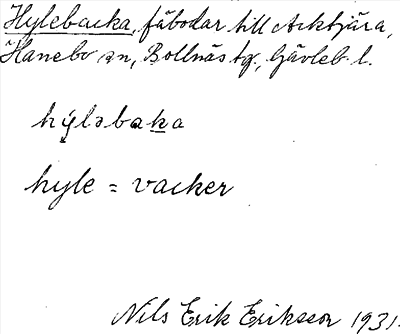 Hylebacka, fäbodar till Acktjära,
Hanebo sn, Bollnäs tg., Gävleb. l.
hyləbaka
hyle = vacker
Nils Erik Eriksson 1931.